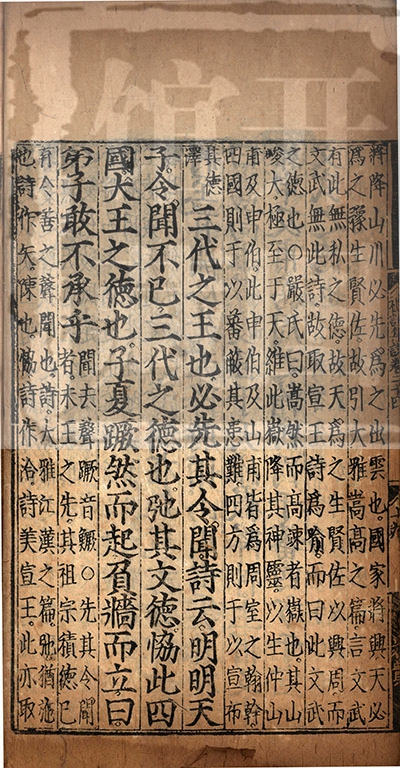 將降山川必先爲之出雲也國家將興天必
爲之豫生賢佐故引大雅嵩高之篇言文武
有此無私之德故天爲之生賢佐以興周而
文武無此詩故取宣王詩爲喻而曰此文武
之德也○嚴氏曰嵩然而高竦者嶽也其山
峻大極至于天維此嶽降其神靈以生仲山
甫及申伯此申伯及山甫皆爲周室之翰幹
四國則于以蕃蔽其患難四方則于以宣布
其德
澤
三代之王也必先其令聞詩云明明天
子令聞不已三代之德也弛其文德恊此四
國大王之德也子夏蹶然而起負牆而立曰
弟子敢不承乎
聞去聲蹶音鱖○先其令聞
者未王之先其祖宗積德已
有令善之聲聞也詩大雅江漢之篇弛猶施
也詩作矢陳也恊詩作洽詩美宣王此亦取